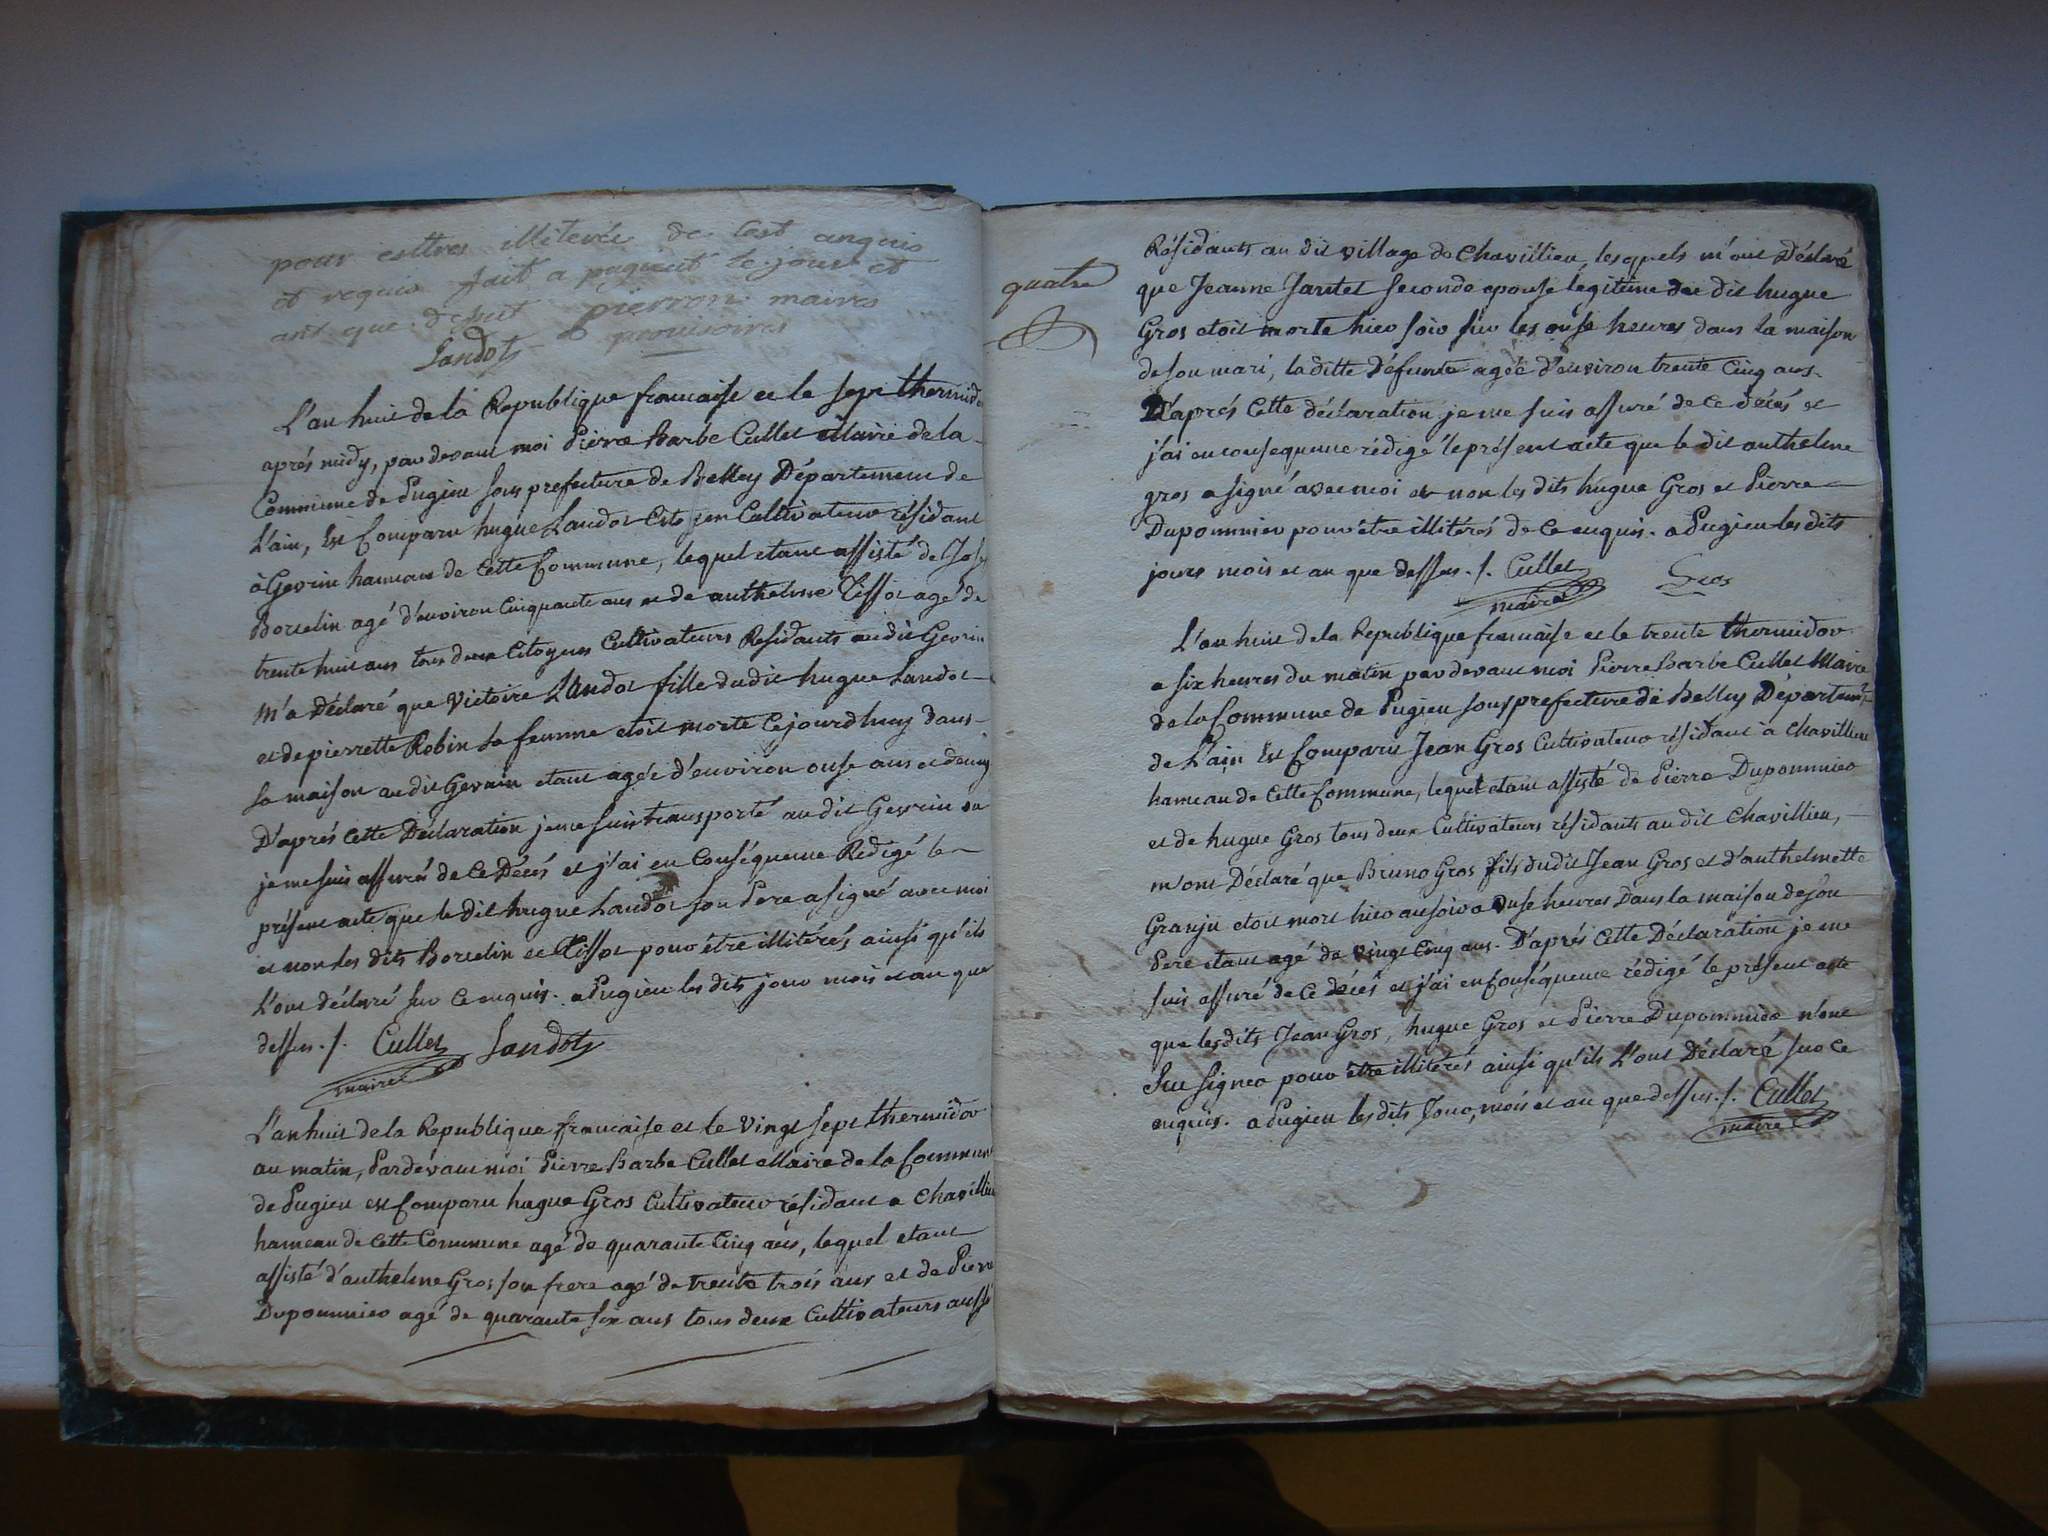 pour esttres illiterée de cest anquis
et requis fait a pugieut le jour et
ant que desut pierron maires
Landot provisoires
L'an huit de la Republique francaise et le sept thermidor
aprés midy, par devant moi Pierre Barbe Cullet Maire de la
Commune de Pugieu sous prefecture de Belley Département de
L'ain, Est Comparu hugue Landot Citoyen Cultivateur résidant
à Gevrin hameau de Cette Commune, lequel etant assisté de Josep
Borselin agé d'environ Cinquante ans et de anthelme Tissot agé de
trente huit ans tous deux Citoyens Cultivateurs Résidants au dit Gevrin
m'a Déclaré que Victoire Landot fille du dit hugue Landot
et de pierrette Robin sa femme etoit morte Cejourdhuy dans
sa maison au dit Gevrin etant agée d'environ onse ans et demy
D'aprés Cette Déclaration je me suis transporté au dit Gevrin ou
je me suis assuré de Ce Décés et j'ai en Conséquence Redigé le
présent acte que le dit hugue Landot son Pere a signé avec moi
et non les dits Borselin et Tissot pour étre illitérés ainsi qu'ils
L'ont déclaré sur Ce enquis. a Pugieu les dits jour mois et an que
dessus ./. Cullet Landot
maire
L'an huit de la Republique francaise et le Vingt sept thermidor
au matin, Pardevant moi Pierre Barbe Cullet Maire de la Commune
de Pugieu est Comparu hugue Gros Cultivateur résidant a Chavillieu
hameau de Cette Commune agé de quarante Cinq ans, lequel etant
assisté d'anthelme Gros son frere agé de trente trois ans et de Pierre
Dupommier agé de quarante six ans tous deux Cultivateurs aussi
quatre
Résidants au dit village de Chavillieu, lesquels m'ont Déclaré
que Jeanne Santet seconde epouse légitime du dit hugue
Gros etoit morte hier soir sur les onse heures dans la maison
de son mari, la ditte Défunte agée d'environ trente Cinq ans.
D'aprés Cette déclaration je me suis assuré de Ce décés et
j'ai en consequence rédigé le présent acte que le dit anthelme
gros a signé avec moi et non les dits hugue Gros et Pierre
Dupommier pour étre illitérés de Ce enquis. a Pugieu les dits
jours mois et an que dessus ./. Cullet Gros
maire
L'an huit de la Republique francaise et le trente thermidor
a six heures du matin par devant moi Pierre Barbe Cullet Maire
de la Commune de Pugieu sous prefecture de Belley Départemt
de L'ain Est Comparu Jean Gros Cultivateur résidant à Chavillieu
hameau de Cette Commune, lequel etant assisté de Pierre Dupommier
et de hugue Gros tous deux Cultivateurs résidants au dit Chavillieu,
m'ont Déclaré que Bruno Gros fils du dit Jean Gros et d'anthelmette
Granju etoit mort hier au soir a onse heures Dans la maison de son
Pere etant agé de vingt Cinq ans. D'aprés Cette Déclaration je me
suis assuré de Ce décés et j'ai en Conséquence rédigé le présent acte
que les dits Jean Gros, hugue Gros et Pierre Dupommier n'ont
Su signer pour étre illitérés ainsi qu'ils L'ont Déclaré sur Ce
enquis. a Pugieu les dits Jour, mois et an que dessus ./. Cullet
maire